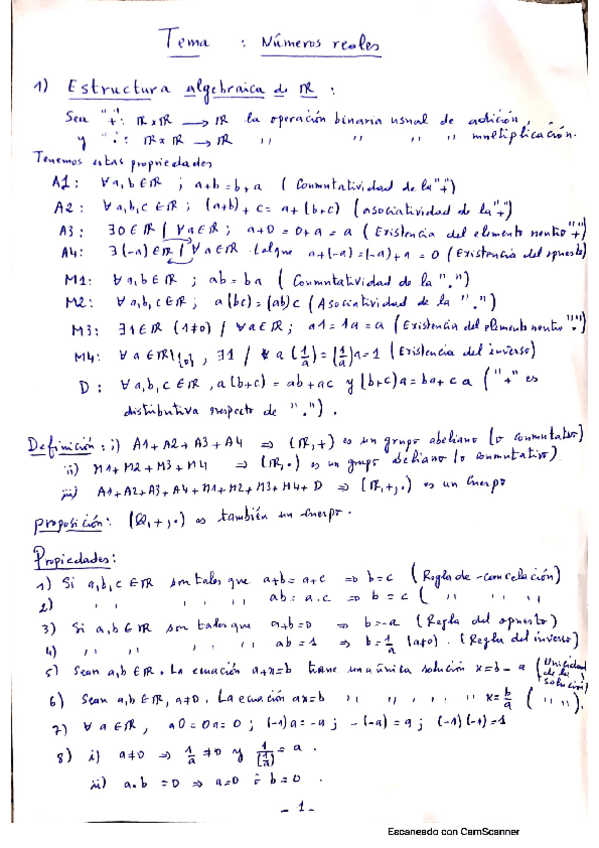 Tema : Números reales
1) Estructura algebraica de ℝ :
Sea "+": ℝxℝ → ℝ la operación binaria usual de adición,
y ".": ℝxℝ → ℝ ,, ,, ,, ,, multiplicación.
Tenemos estas propriedades
A1: ∀ a,b ∈ ℝ ; a+b = b+a ( Conmutatividad de la "+")
A2: ∀ a,b,c ∈ ℝ ; (a+b)+c = a+(b+c) (asociatividad de la "+")
A3: ∃ 0 ∈ ℝ / ∀ a ∈ ℝ ; a+0 = 0+a = a ( Existencia del elemento neutro "+")
A4: ∃ (-a) ∈ ℝ / ∀ a ∈ ℝ tal que a+(-a) = (-a)+a = 0 (Existencia del opuesto)
M1: ∀ a,b ∈ ℝ ; ab = ba ( Conmutatividad de la ".")
M2: ∀ a,b,c ∈ ℝ ; a(bc) = (ab)c ( Asociatividad de la ".")
M3: ∃ 1 ∈ ℝ (1≠0) / ∀ a ∈ ℝ ; a1 = 1a = a ( Existencia del elemento neutro ".")
M4: ∀ a ∈ ℝ\{0} , ∃ 1 / a (1/a) = (1/a) a = 1 ( Existencia del inverso)
D : ∀ a,b,c ∈ ℝ , a(b+c) = ab+ac y (b+c)a = ba+ca ( "+" es
distributiva respecto de ".") .
Definición: i) A1+A2+A3+A4 ⇒ (ℝ,+) es un grupo abeliano (o conmutativo)
ii) M1+M2+M3+M4 ⇒ (ℝ,.) es un grupo abeliano (o conmutativo).
iii) A1+A2+A3+A4+M1+M2+M3+M4+D ⇒ (ℝ,+,.) es un Cuerpo
proposición: (ℚ,+,.) es también un cuerpo.
Propiedades:
1) Si a,b,c ∈ ℝ son tales que a+b = a+c ⇒ b=c ( Regla de cancelación)
2) ,, ,, ,, ,, ab = a.c ⇒ b=c ( ,, ,,
3) Si a,b ∈ ℝ son tales que a+b=0 ⇒ b=-a ( Regla del opuesto)
4) ,, ,, ,, ,, ab = 1 ⇒ b=1/a (a≠0). ( Regla del inverso)
5) Sean a,b ∈ ℝ. La ecuación a+x=b tiene una única solución x=b-a (Unicidad de la solución)
6) Sean a,b ∈ ℝ, a≠0. La ecuación ax=b ,, ,, ,, ,, x=b/a ( ,, ,, ).
7) ∀ a ∈ ℝ, a0=0a=0 ; (-1)a=-a ; -(-a)=a ; (-1)(-1)=1
8) i) a≠0 ⇒ 1/a ≠0 y 1/(1/a) = a .
ii) a.b = 0 ⇒ a=0 ó b=0 .
- 1 -
Escaneado con CamScanner